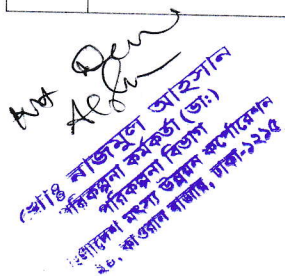 মোঃ নাজমুল আহসান
পরিকল্পনা কর্মকর্তা (ভাঃ)
পরিকল্পনা বিভাগ
বাংলাদেশ মৎস্য উন্নয়ন কর্পোরেশন
কাওরান বাজার, ঢাকা-১২১৫